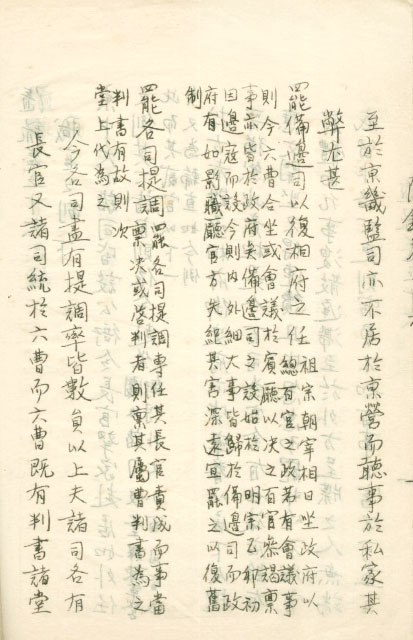 至於京畿監司亦不居於京營而聽事於私家其
弊尤甚
罷備邊司以復相府之任 祖宗朝宰相日坐政府以
總百官之政若有會議事
則令六曹合坐或會議於賓廳以决之百官叅謁稟
事亦皆於政府矣備邊司之設始於 明宗乙卯初
因邊寇而設今則内外細大事皆歸於備邊司而政
府有如影職廳官方失紀其害深遠宜罷之以復舊
制
罷各司提調 罷各司提調專任其長官責成而事當
稟决或啓判者則稟其屬曹判書為之
判書有故則次
堂上代為之
今各司盡有提調率皆數員以上夫諸司各有
長官又諸司統於六曹而六曹既有判書諸堂